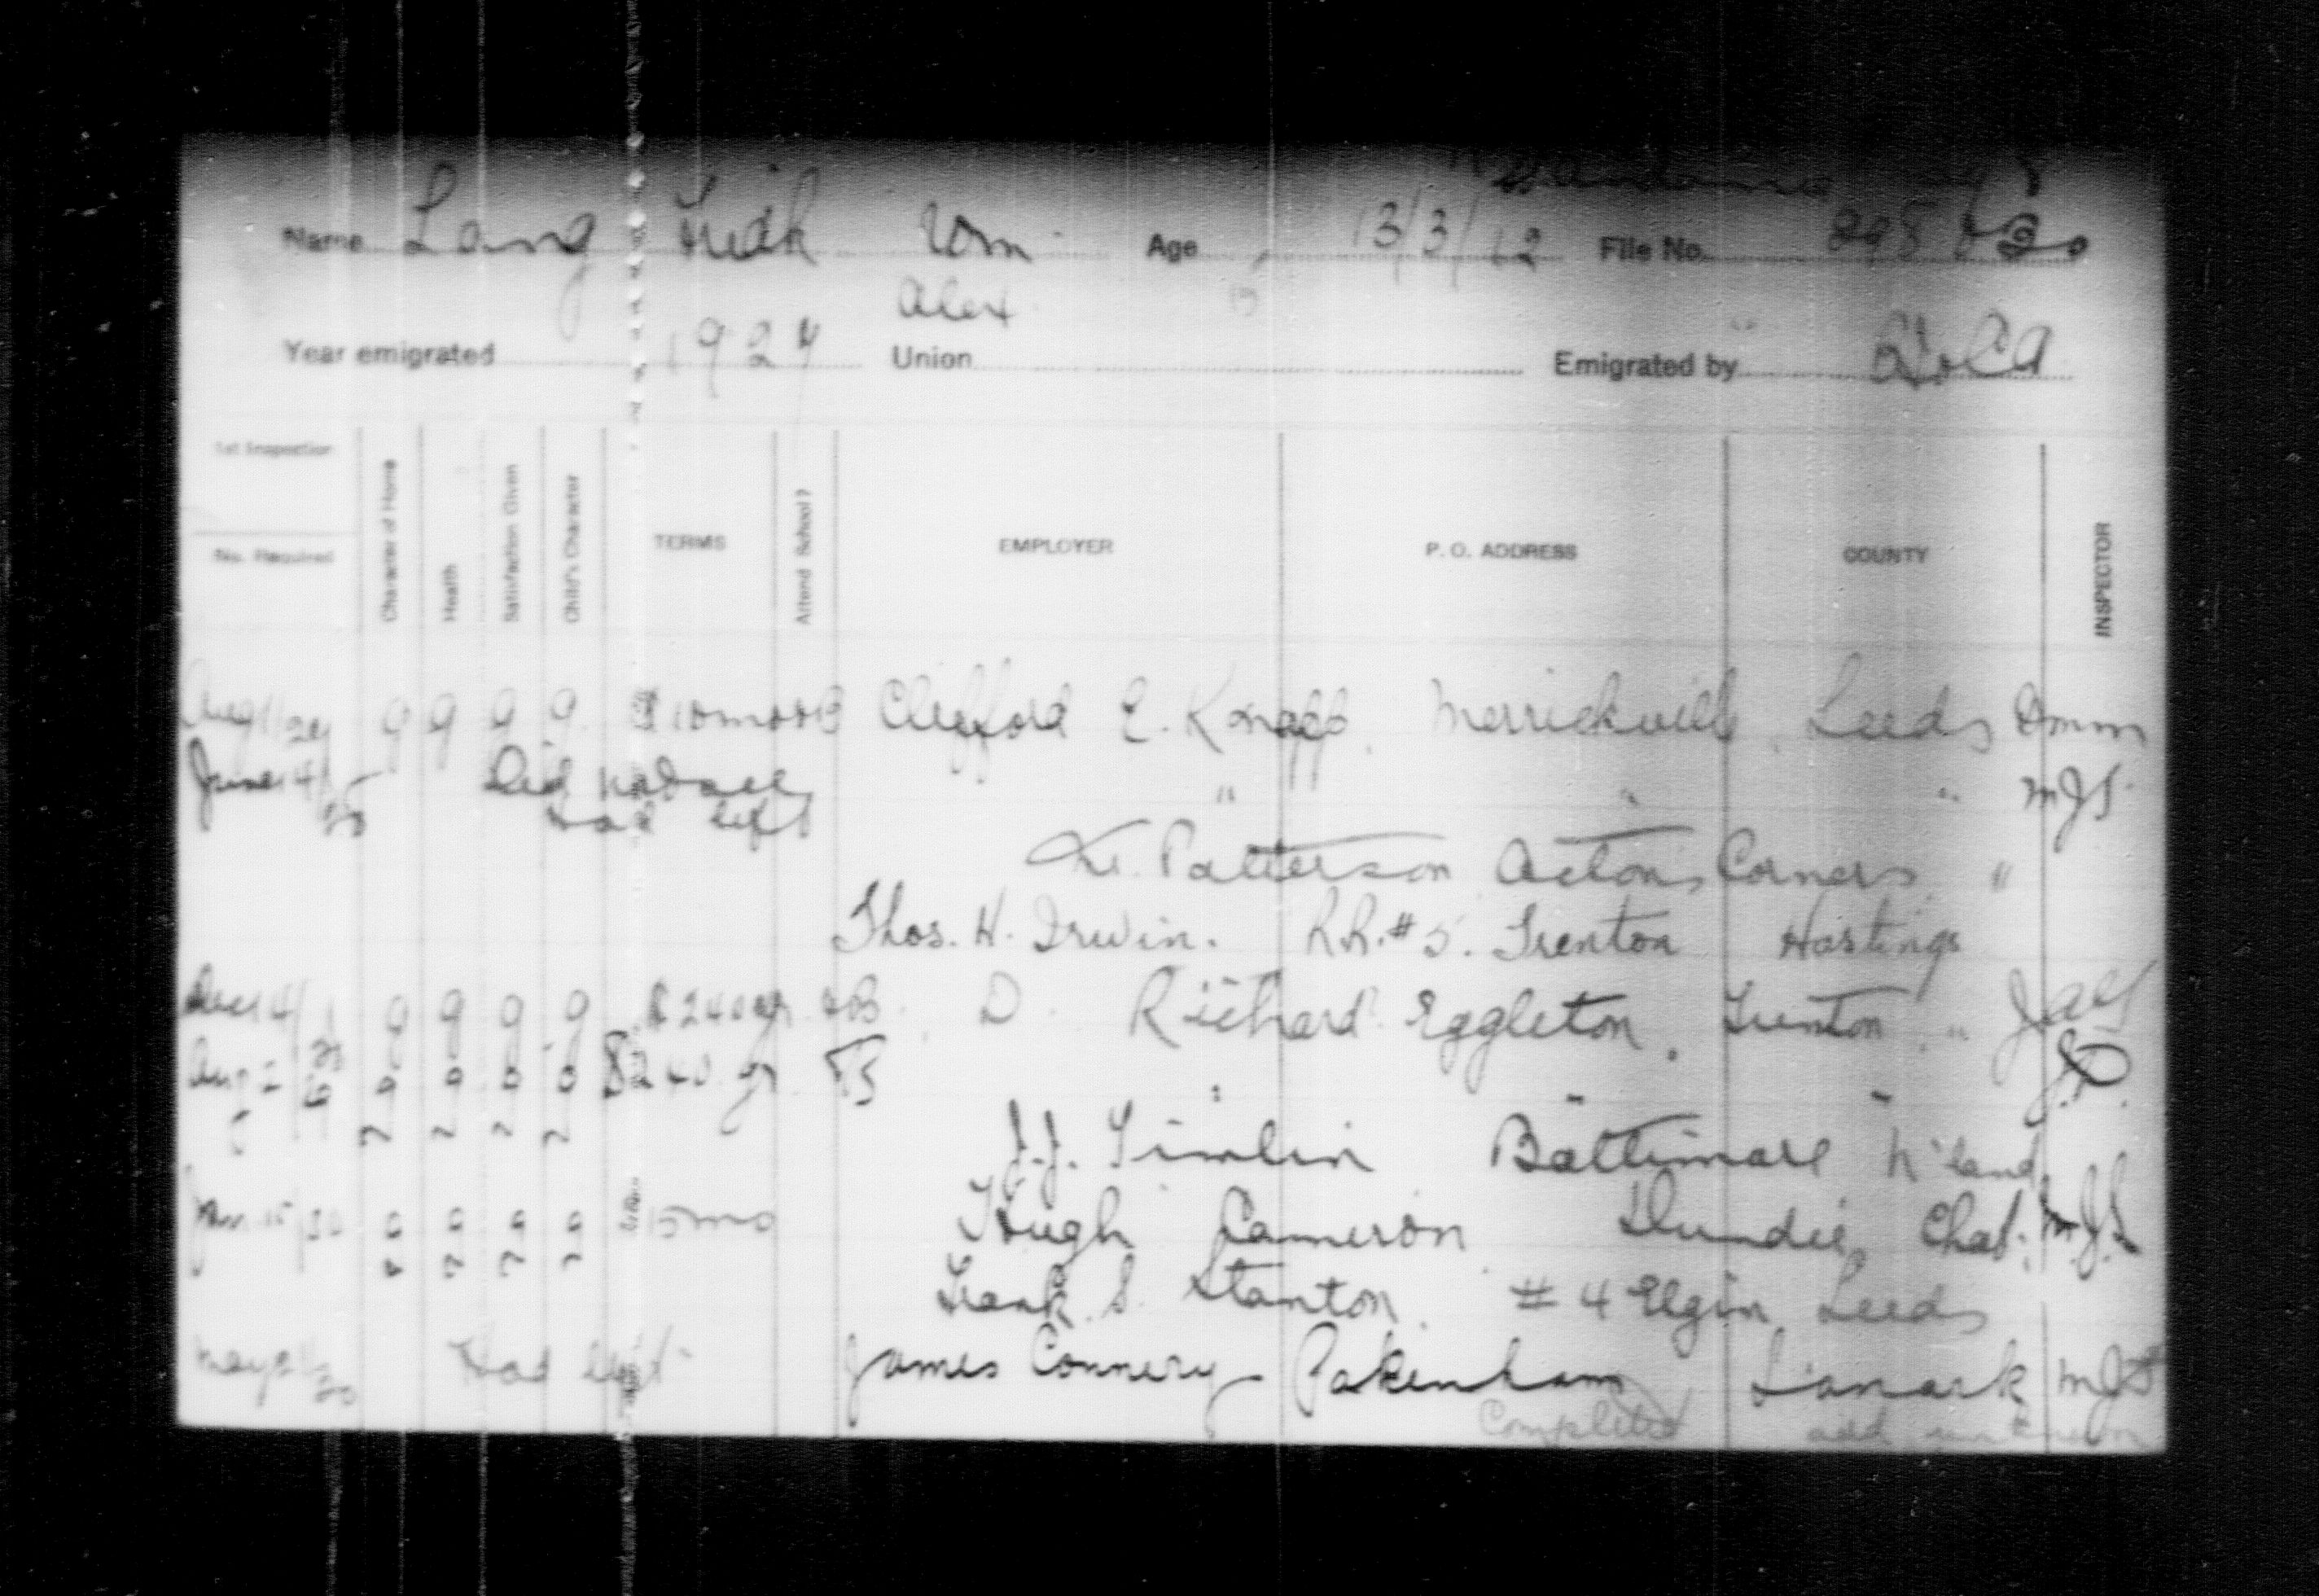 Name Lang Fredk Wm Age 13/3/12 File No.
Alex
Year emigrated 1924 Union Emigrated by
1st Inspection
No. Required
Character of Home
Health
Satisfaction Given
Child's Character
TERMS
Attend School?
EMPLOYER
P. O. ADDRESS
COUNTY
INSPECTOR
Aug 11/24 g g g g $10 mo Clifford E. Knapp, Merrickville, Leeds
June 4/25 Did not see " " " MJS
Had left
Patterson Actons Corners "
Thos. H. Irwin. R.R. #5. Trenton Hastings
Dec 14/ g g g g $240 yr B. D. Richard Eggleton, Trenton "
Aug $240 yr B " " "
J.J. Timlin Baltimore N'land
15 mo Hugh Cameron Dundee, Chat. M.J.S
Frank S. Stanton #4 Elgin, Leeds
May Had left James Connery Pakenham Lanark MJS
Completed add unknown